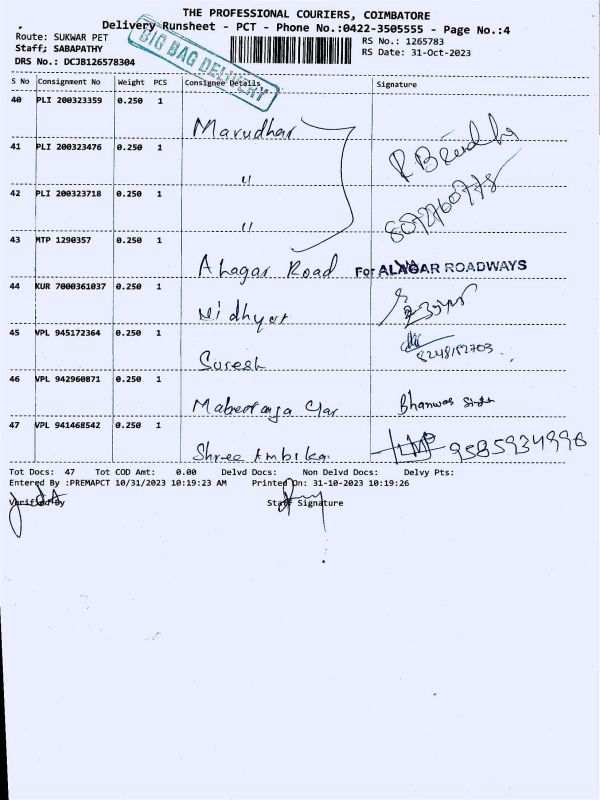 THE PROFESSIONAL COURIERS, COIMBATORE
Delivery Runsheet - PCT - Phone No.:0422-3505555 - Page No.:4
Route: SUKWAR PET
RS No.: 1265783
Staff; SABAPATHY
RS Date: 31-Oct-2023
DRS No.: DCJB126578304
BIG BAG DELIVERY
S No Consignment No Weight PCS Consignee Details Signature
40 PLI 200323359 0.250 1 Marudhar
41 PLI 200323476 0.250 1 "
42 PLI 200323718 0.250 1 "
8072760778
43 MTP 1290357 0.250 1 Alagar Road For ALAGAR ROADWAYS
44 KUR 7000361037 0.250 1
45 VPL 945172364 0.250 1 Suresh 8248152703
46 VPL 942960871 0.250 1 Bhanwar
47 VPL 941468542 0.250 1 Shree Ambika 9585934996
Tot Docs: 47 Tot COD Amt: 0.00 Delvd Docs: Non Delvd Docs: Delvy Pts:
Entered By :PREMAPCT 10/31/2023 10:19:23 AM Printed On: 31-10-2023 10:19:26
Verified By Staff Signature